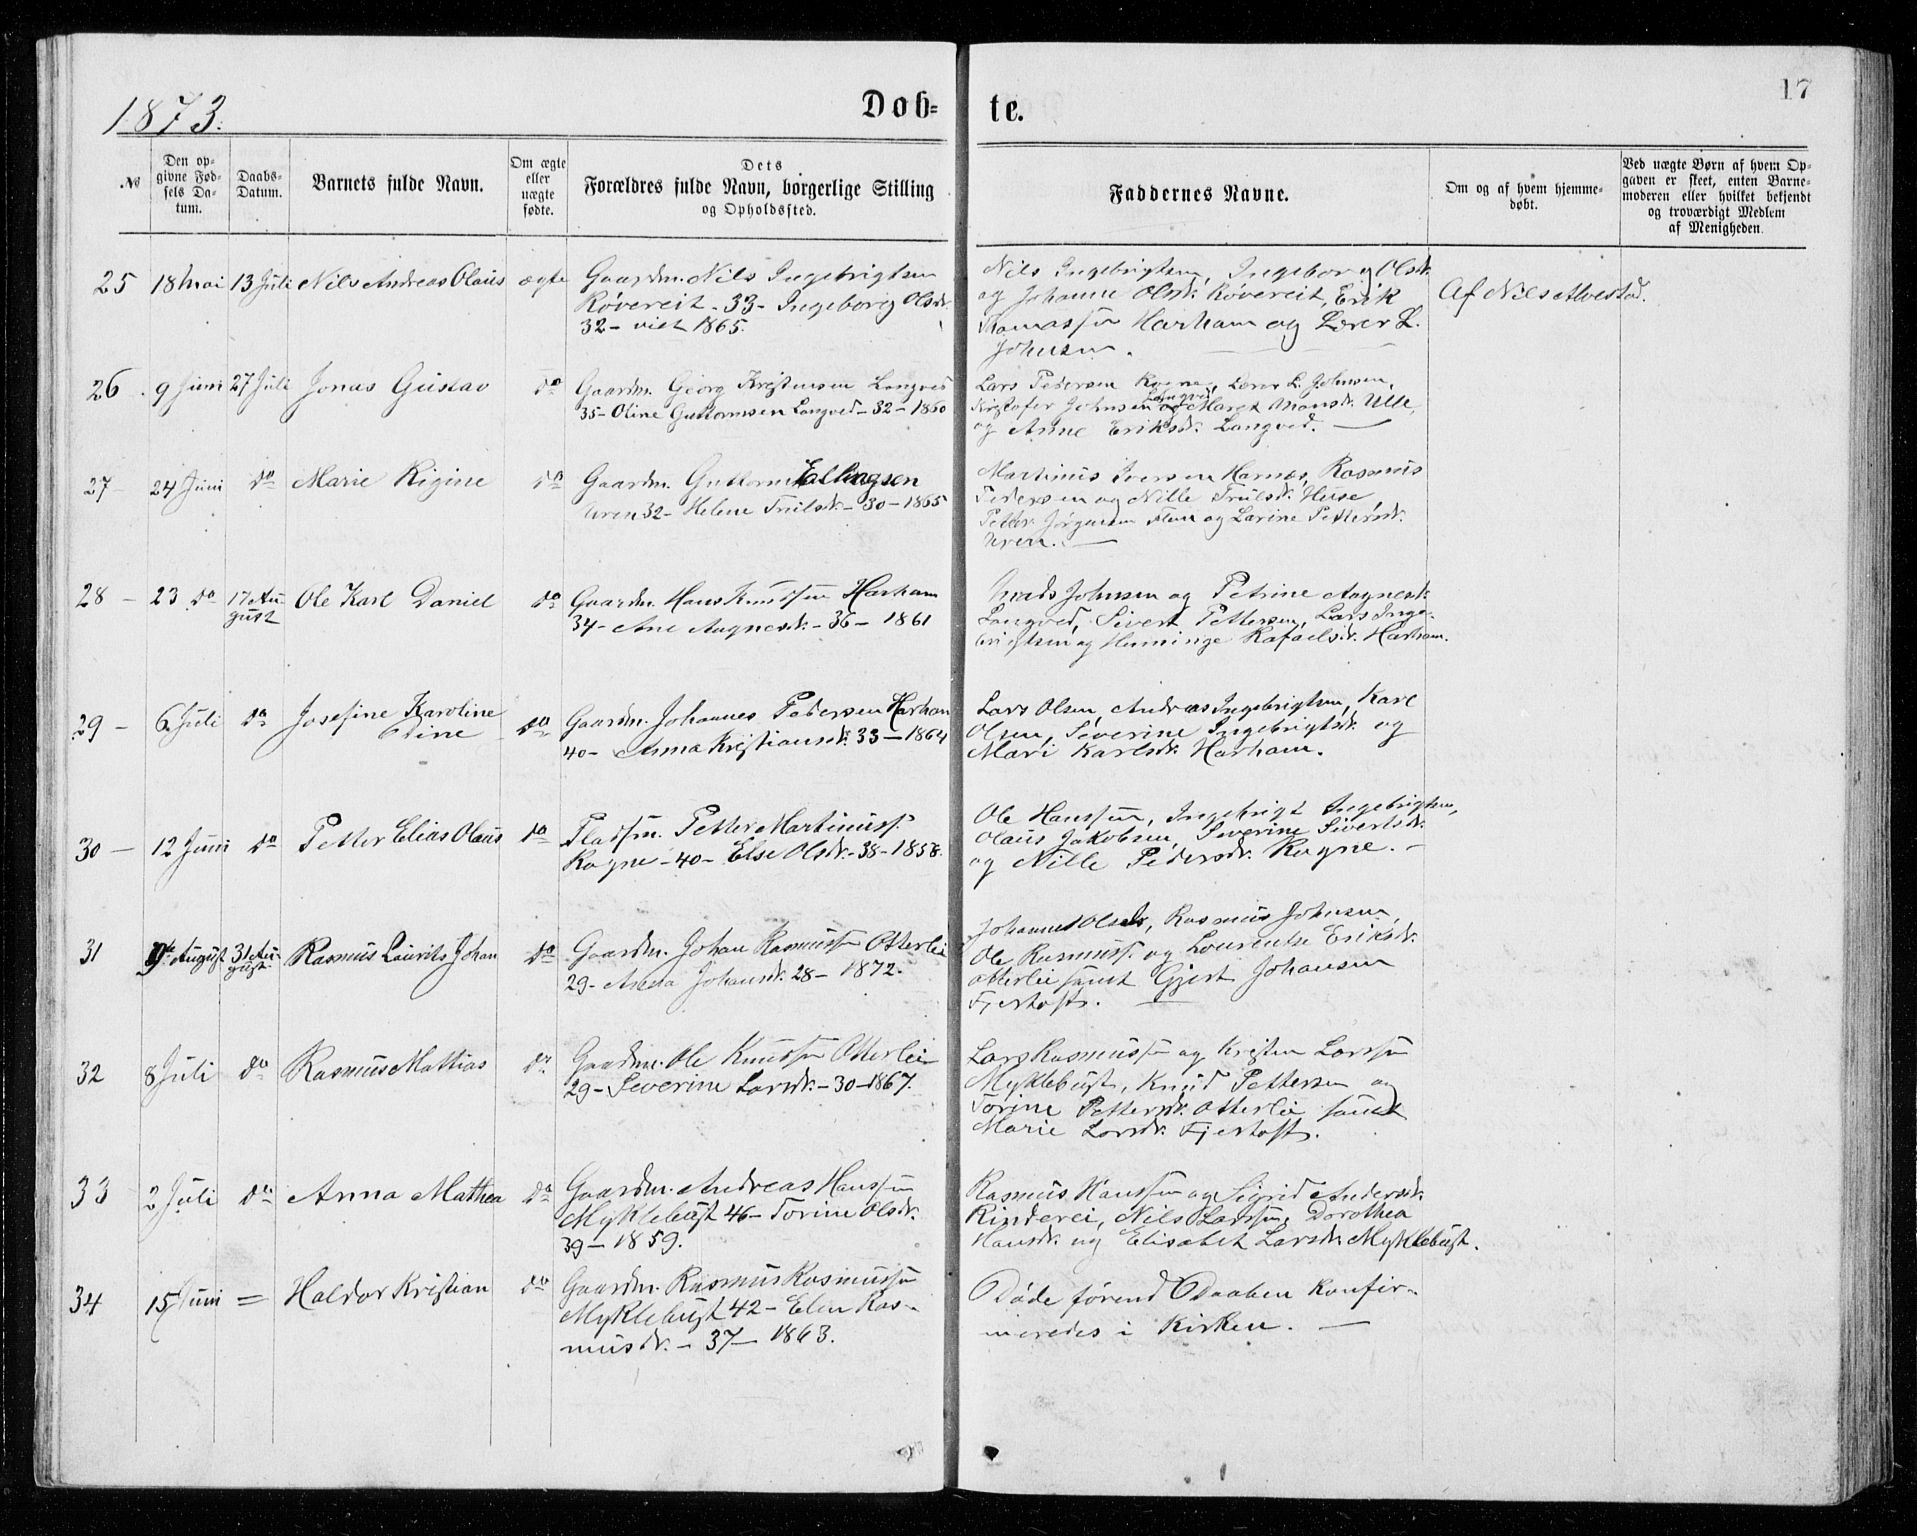 1873.
Døb-
te.
17
No
Den op-
givne Fød-
sels Da-
tum.
Daabs-
Datum.
Barnets fulde Navn.
Om ægte
eller
uægte
fødte.
Dets
Forældres fulde Navn, borgerlige Stilling
og Opholdssted.
Faddernes Navne.
Om og af hvem hjemme-
døbt.
Ved uægte Børn af hvem Op-
gaven er skeet, enten Barne-
moderen eller hvilket bekjendt
og troværdigt Medlem
af Menigheden.
25 18 Mai 13 Juli Nils Andreas Olaus ægte
Gaardm. Nils Ingebrigtsen
Røvereit - 33 - Ingeborg Olsdr.
32 - viet 1865.
Nils Ingebrigtsen, Ingeborg Olsdr.
og Johanne Olsdr. Røvereit, Erik
Thomassen Harham og Lærer L.
Johnsen.
Af Nils Alvestad.
26 9 Juni 27 Juli Jonas Gustav do
Gaardm. Georg Kristensen Longved
35 - Oline Guttormsen Longved - 32 - 1860
Lars Pedersen Rogne, Lærer L. Johnsen,
Kristofer Johnsen Longved og Maret Monsdr. Ulle
og Anne Eriksdr. Longved. —
27 - 24 Juni do Marie Rigine do
Gaardm. Guttorm Ellingsen
Uren 32 - Helene Trulsdr. - 30 - 1865
Martinus Iversen Harnes, Rasmus
Pedersen og Nille Trulsdr. Huse
Petter Jørgensen Flem og Larine Pettersdr.
Uren. —
28 - 23 do 17 Au-
gust Ole Karl Daniel do
Gaardm. Hans Knudsen Harham
34 - Ane Aagnesdr. - 36 - 1861
Mads Johnsen og Petrine Aagnesdr.
Longved, Sivert Pettersen, Lars Inge-
brigtsen og Henninge Rafaelsdr. Harham.
29 - 6 Juli do Josefine Karoline
Oline do
Gaardm. Johannes Pedersen Harham
40 - Anna Kristiansdr. 33 - 1864
Lars Olsen, Andreas Ingebrigtsen, Karl
Olsen, Severine Ingebrigtsdr. og
Mari Karlsdr. Harham.
30 - 12 Juni do Petter Elias Olaus do
Pladsm. Petter Martinuss.
Rogne - 40 - Else Olsdr. - 38 - 1858.
Ole Hanssen, Ingebrigt Ingebrigtsen,
Olaus Jakobsen, Severine Sivertsdr.
og Nille Pedersdr. Rogne. -
31 9de August 31 Au-
gust. Rasmus Laurits Johan do
Gaardm. Johan Rasmussen Otterlei
29 - Johansdr. 28 - 1872.
Johannes Olsen, Rasmus Johnsen,
Ole Rasmuss. og Lourentse Eriksdr.
Otterlei samt Gjert Johansen
Fjertoft. —
32 8 Juli do Rasmus Mathias do
Gaardm. Ole Knudsen Otterlei
29 - Severine Larsdr. - 30 - 1867.
Lars Rasmussen og Kristen Larssen
Myklebust, Knud Pettersen og
Torine Pettersdr. Otterlei samt
Marie Larsdr. Fjertoft.
33 2 Juli do Anna Mathea do
Gaardm. Andreas Hanssen
Myklebust 46 - Torine Olsdr.
39 - 1859.
Rasmus Hanssen og Sigrid Andersdr.
Rinderei, Nils Larssen, Dorothea
Hansdr. og Elisabet Larsdr. Myklebust.
34 15 Juni = Haldor Kristian do
Gaardm. Rasmus Rasmussen
Myklebust 42 - Elen Ras-
musdr. - 37 - 1863.
Døde førend Daaben konfir-
meredes i Kirken. —